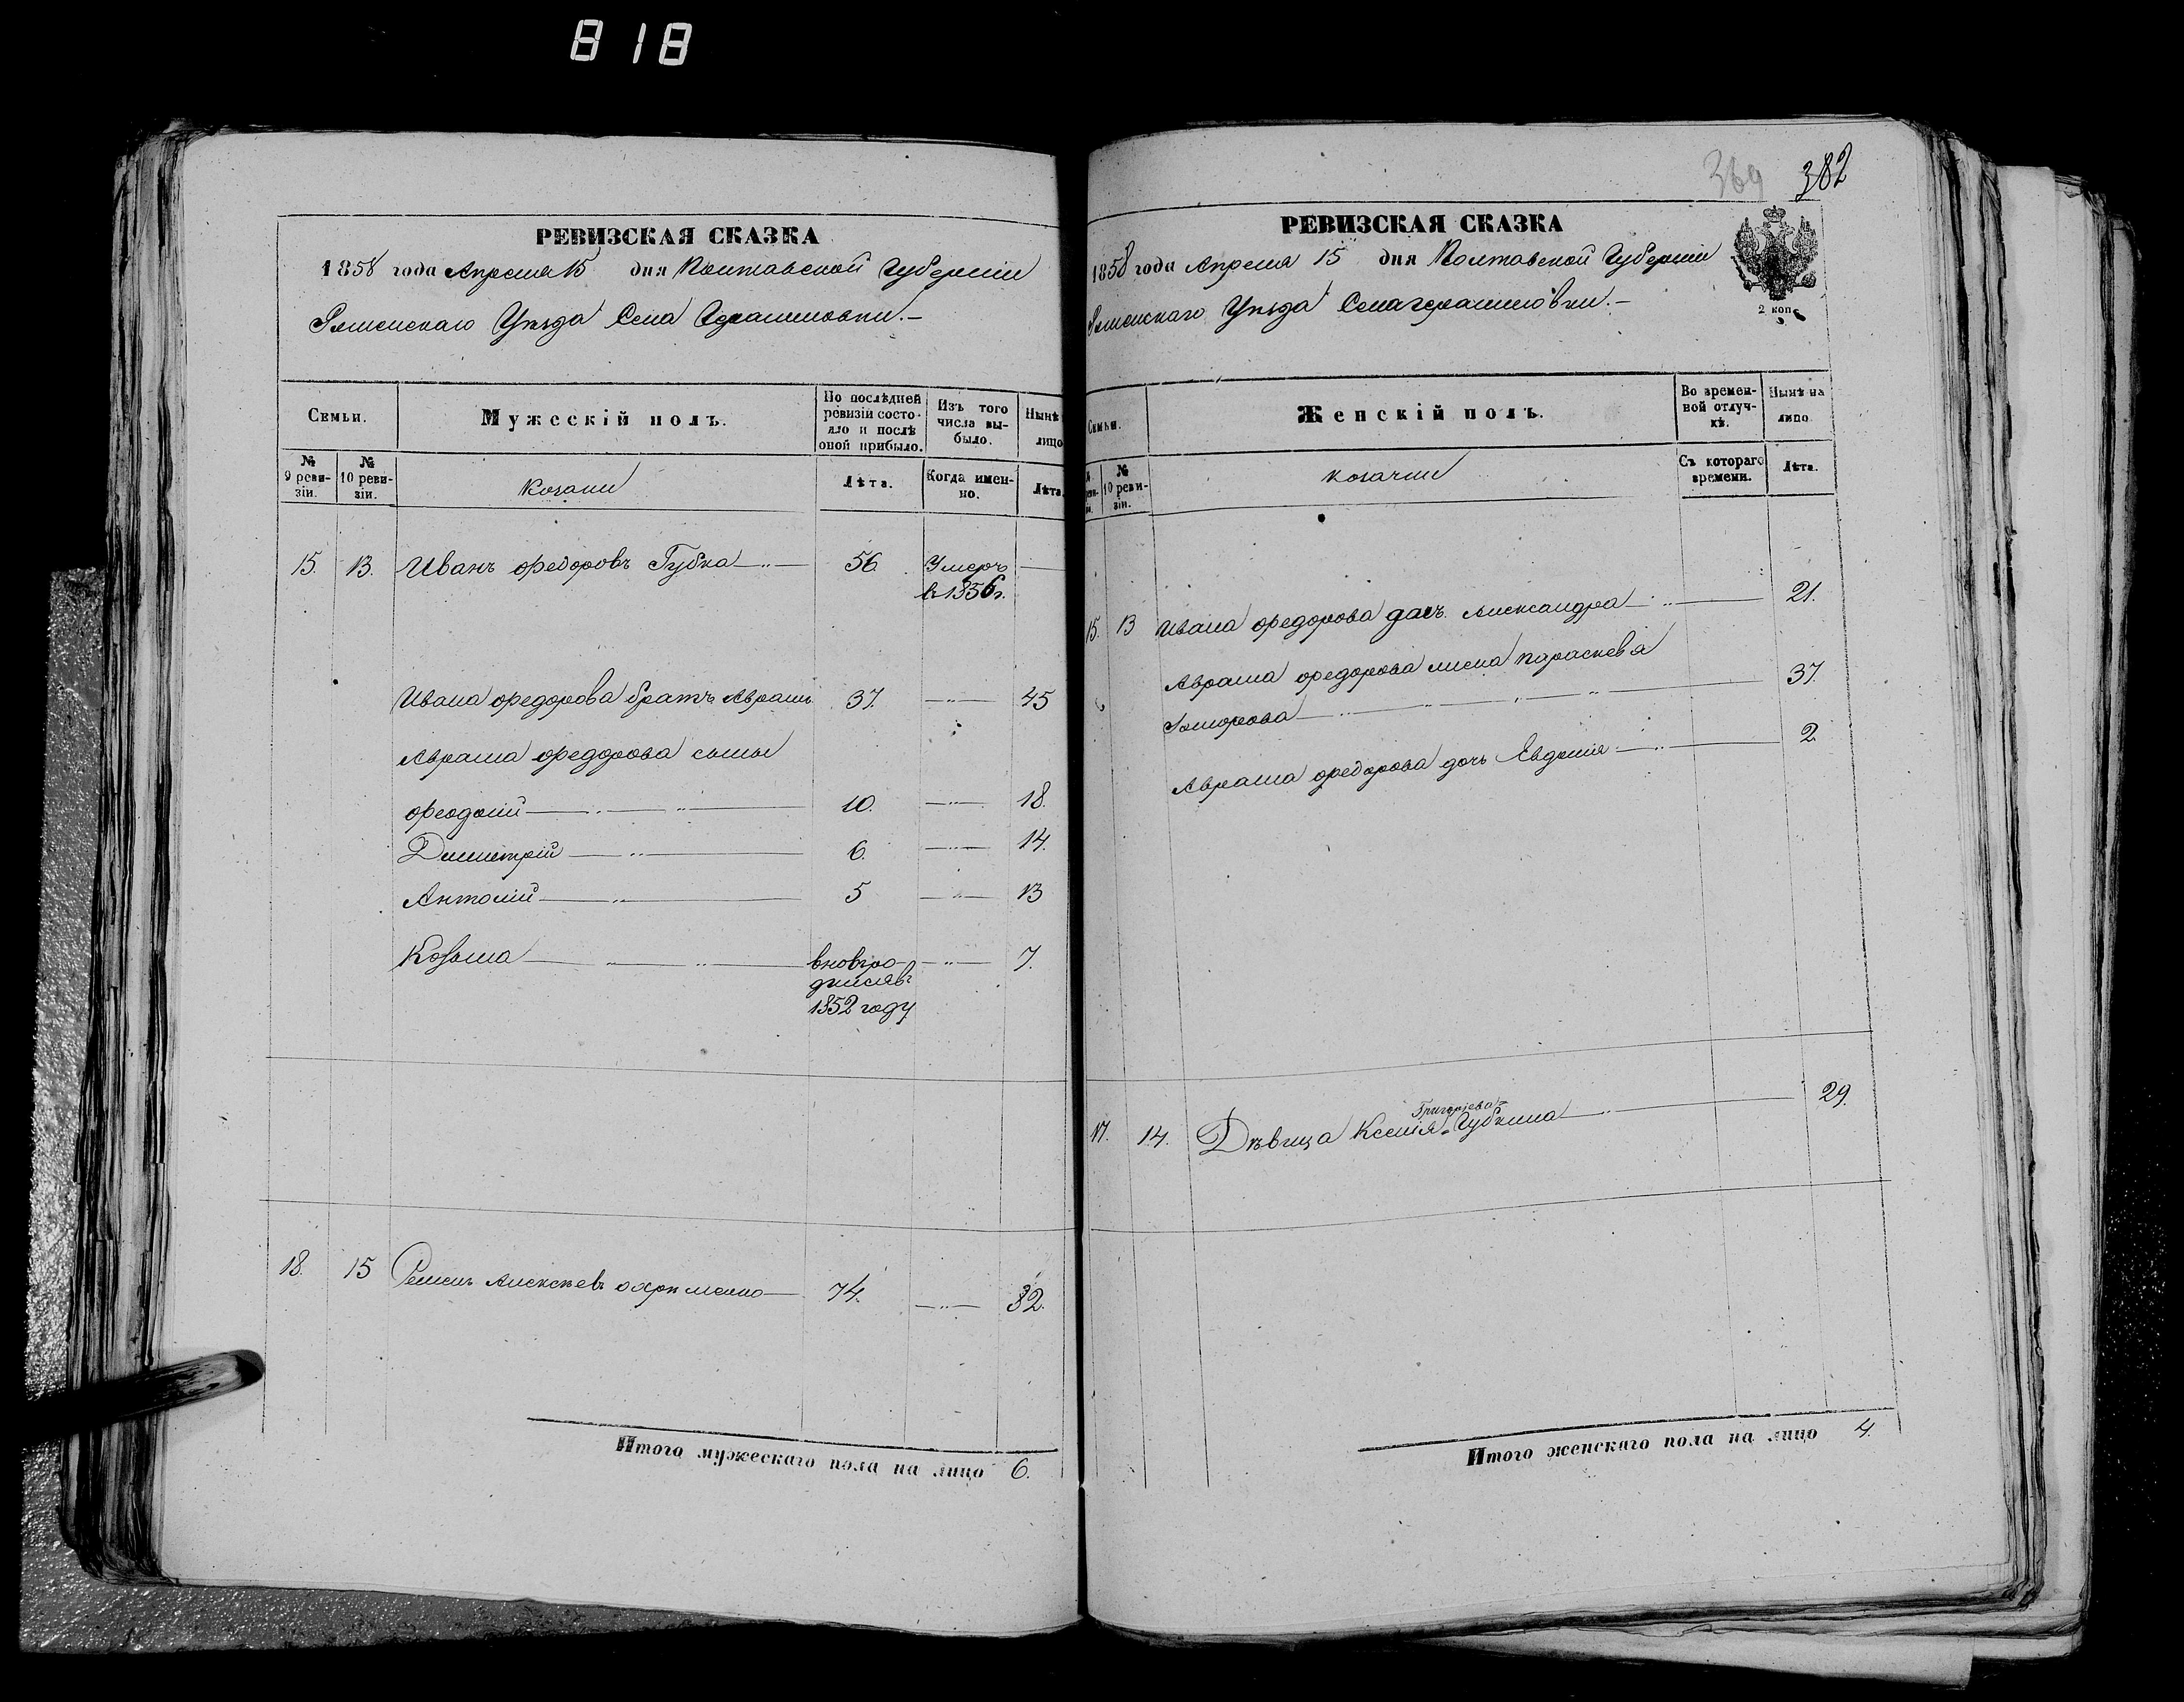 818
РЕВИЗСКАЯ СКАЗКА
1858 года Апреля 15 дня Полтавской Губернiи
Роменскаго Уѣзда Села Герашиовки.–
Семьи.
Мужескiй полъ.
По послѣдней ревизiи состояло и послѣ оной прибыло.
Изъ того числа выбыло.
Нынѣ лицо
№ 9 ревизiи.
№ 10 ревизiи.
Козаки
Лѣта.
Когда именно.
Лѣта.
15. 13. Иванъ Федоровъ Губка 56. Умеръ
в 1856 г.
Ивана Федорова братъ Аврамъ 37. 45
Аврама Федорова сыны
Феодосiй 10. 18.
Димитрiй 6. 14.
Антонiй 5 13
Козьма вновь ро- 7.
дился в
1852 году
18. 15 Алексѣевъ 74. 82.
Итого мужескаго пола на лицо 6.
369 382
РЕВИЗСКАЯ СКАЗКА
1858 года Апреля 15 дня Полтавской Губернiи
Роменскаго Уѣзда Села
2 коп.
Семьи.
Женскiй полъ.
Во временной отлучкѣ.
Нынѣ на лицо.
№ 10 ревизiи.
козачки
Съ котораго времени.
Лѣта.
15. 13 Ивана Федорова дочь Александра 21.
Аврама Федорова жена Параскева
37.
Аврама Федорова дочь Евдокiя 2.
Григорiева
17. 14. Дѣвица Ксенiя Губкина 29.
Итого женскаго пола на лицо 4.